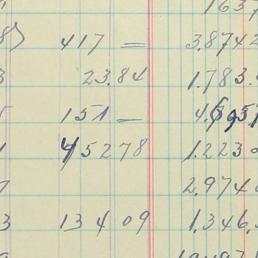 1637
8) 417 — 3.8742
3 23.84 1.783.
151 — 4.695
1 45278 1.223
7 2.974
3 134 09 1.346.